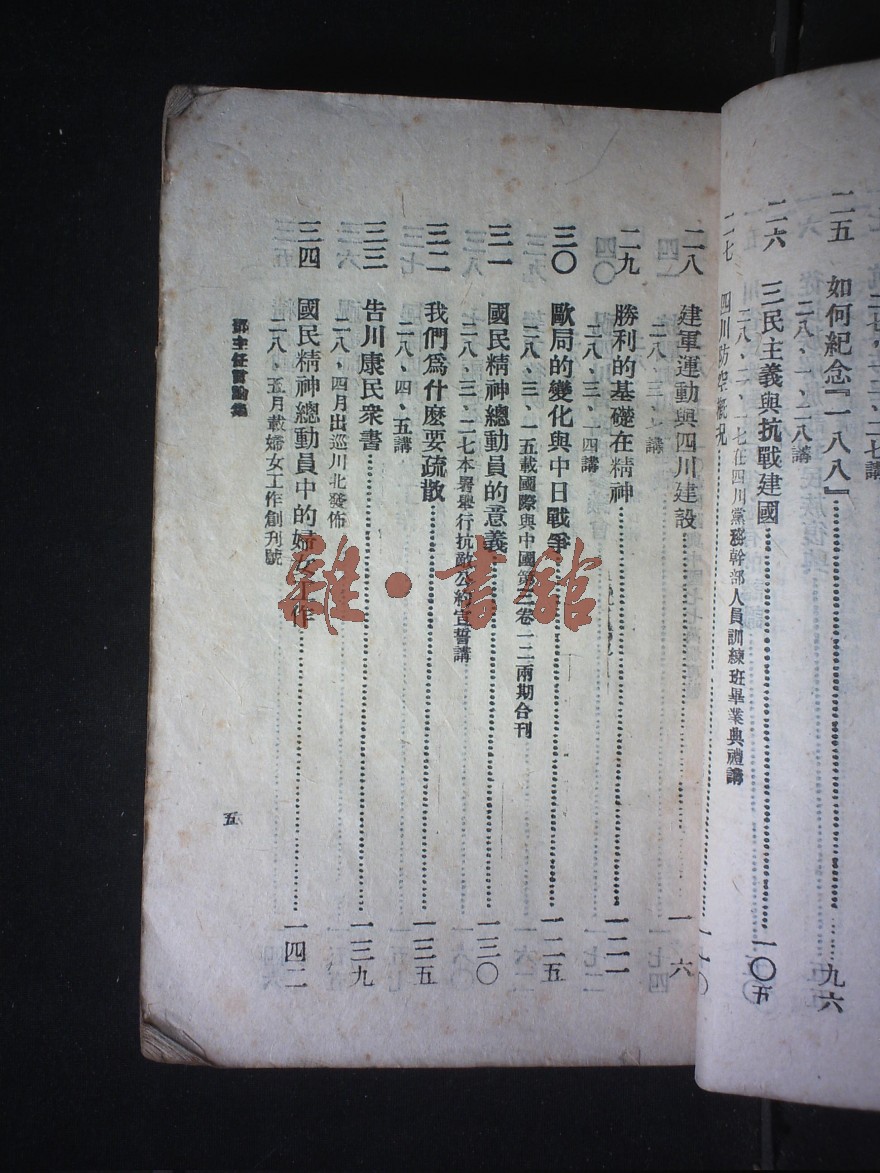 二五 如何紀念『一八八』 九六
二八、一、二八講
二六 三民主義與抗戰建國 一〇五
二八、二、一七在四川黨務幹部人員訓練班畢業典禮講
二七 四川防空概況
二八 建軍運動與四川建設 一一六
二九 勝利的基礎在精神 一二一
二八、三、一四講
三〇 歐局的變化與中日戰爭 一二五
二八、三、一五載國際與中國第三卷一二兩期合刊
三一 國民精神總動員的意義 一三〇
二八、三、二七本署舉行抗敵公約宣誓講
三二 我們爲什麽要疏散 一三五
二八、四、五講
三三 告川康民衆書 一三九
二八、四月出巡川北發佈
三四 國民精神總動員中的婦女工作 一四二
二八、五月載婦女工作創刊號
鄧主任言論集
五
雜·書館